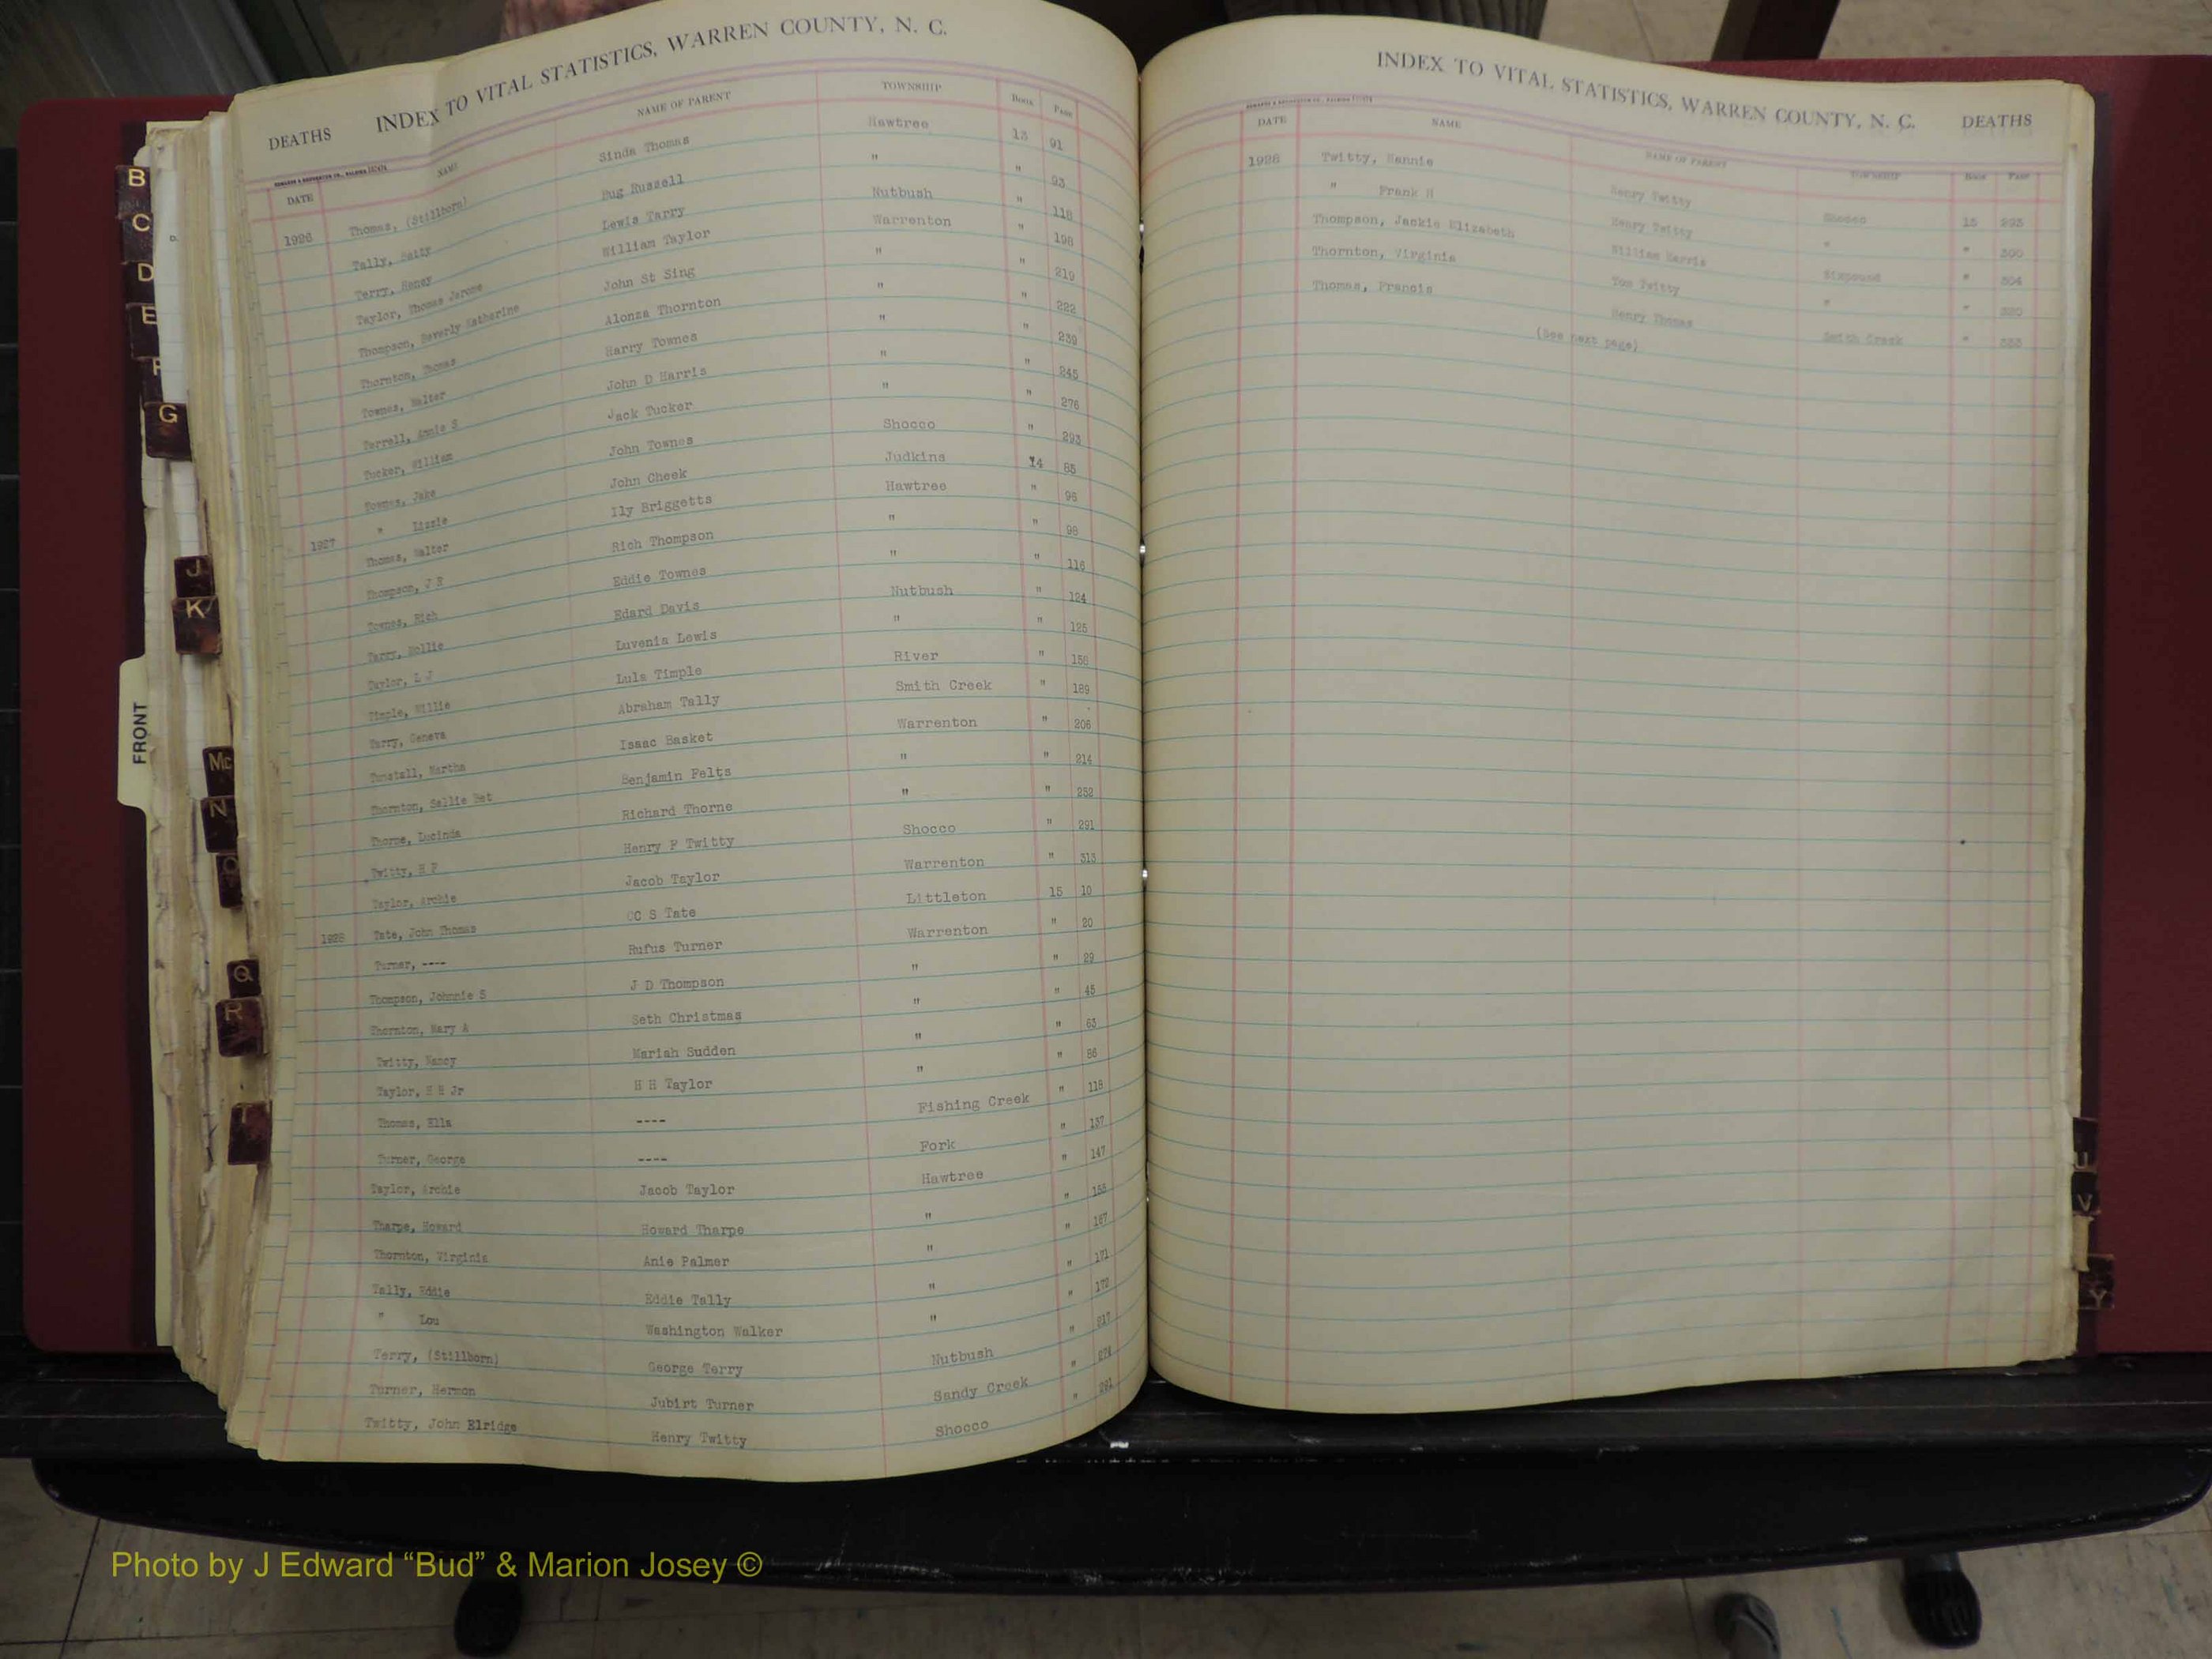 DEATHS INDEX TO VITAL STATISTICS, WARREN COUNTY, N. C.
DATE NAME NAME OF PARENT TOWNSHIP Book Page
1926 Thomas, (Stillborn) Sinda Thomas Hawtree 13 91
Tally, Bug Russell " " 93
Terry, Lewis Tarry Nutbush " 118
Taylor, Thomas Jerome William Taylor Warrenton " 198
Thompson, Beverly Katherine John St Sing " " 219
Thornton, Thomas Alonza Thornton " " 222
Townes, Walter Harry Townes " " 239
Terrell, Annie S John D Harris " " 245
Tucker, William Jack Tucker " " 276
Townes, Jake John Townes Shocco " 293
1927 " Lizzie John Cheek Judkins 14 85
Thomas, Walter Ily Briggetts Hawtree " 96
Thompson, J R Rich Thompson " " 98
Townes, Rich Eddie Townes " " 116
Tarry, Mollie Edard Davis Nutbush " 124
Taylor, L J Luvenia Lewis " " 125
Timple, Willie Lula Timple River " 156
Tarry, Geneva Abraham Tally Smith Creek " 189
Tunstall, Martha Isaac Basket Warrenton " 206
Thornton, Sallie Bet Benjamin Felts " " 214
Thorne, Lucinda Richard Thorne " " 252
Twitty, H P Henry P Twitty Shocco " 291
Taylor, Archie Jacob Taylor Warrenton " 313
1928 Tate, John Thomas CC S Tate Littleton 15 10
Turner, ---- Rufus Turner Warrenton " 20
Thompson, Johnnie S J D Thompson " " 29
Thornton, Mary A Seth Christmas " " 45
Twitty, Nancy Mariah Sudden " " 63
Taylor, H H Jr H H Taylor " " 86
Thomas, Ella ---- Fishing Creek " 118
Turner, George ---- Fork " 137
Taylor, Archie Jacob Taylor Hawtree " 147
Tharpe, Howard Howard Tharpe " " 155
Thornton, Virginia Anie Palmer " " 167
Tally, Eddie Eddie Tally " " 171
" Lou Washington Walker " " 172
Terry, (Stillborn) George Terry Nutbush " 217
Turner, Hermon Jubirt Turner Sandy Creek " 274
Twitty, John Elridge Henry Twitty Shocco " 291
INDEX TO VITAL STATISTICS, WARREN COUNTY, N. C. DEATHS
DATE NAME NAME OF PARENT TOWNSHIP Book Page
1928 Twitty, Nannie Henry Twitty Shocco 15 293
" Frank H Henry Twitty " " 300
Thompson, Jackie Elizabeth William Harris Sixpound " 304
Thornton, Virginia Tom Twitty " " 320
Thomas, Francis Henry Thomas Smith Creek " 333
(See next page)
B
C
D
E
F
G
J
K
FRONT
Mc
N
O
Q
R
T
U
V
Y
Photo by J Edward “Bud” & Marion Josey ©